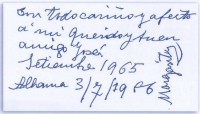 Con todo cariño y afecto
a mi querido y buen
amigo José
Setiembre 1965
Alhama 3/7/1986
Margarita